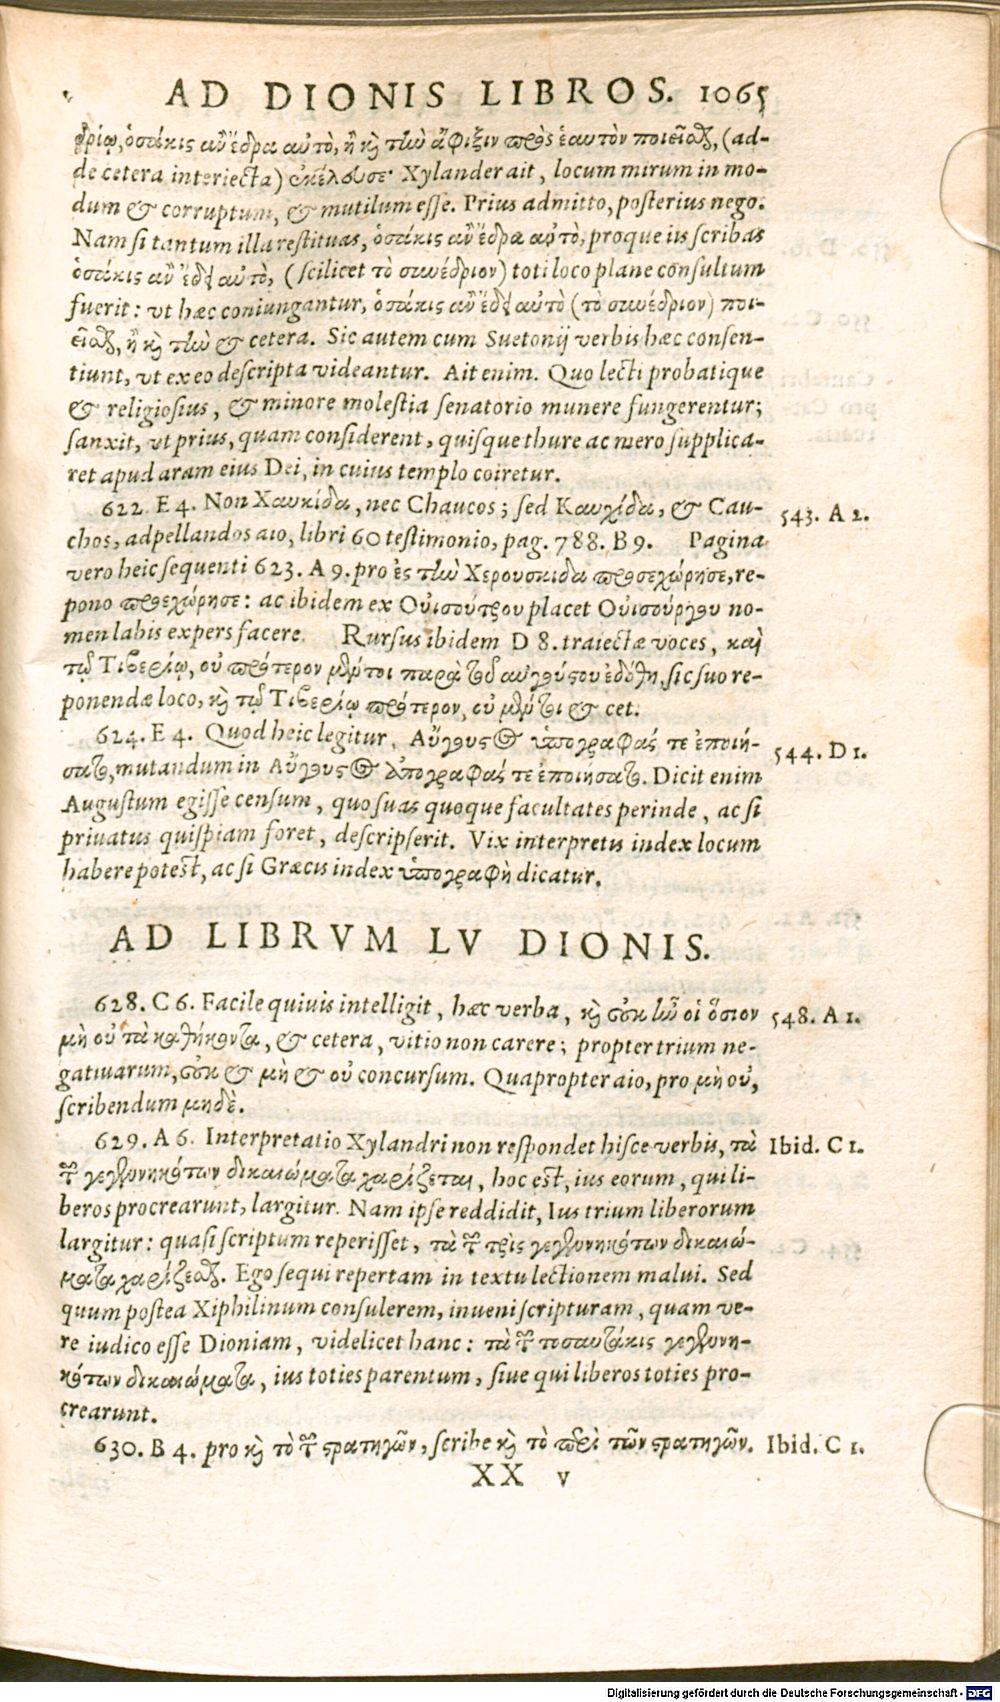 AD DIONIS LIBROS. 1065
δρίῳ, ὁσάκις ἂν ἕδρα αὐτὸ, ἢ καὶ τὴν ἄφιξιν πρὸς ἑαυτὸν ποιεῖσθαι, (ad-
de cetera interiecta) ἐκέλευσε· Xylander ait, locum mirum in mo-
dum & corruptum, & mutilum esse. Prius admitto, posterius nego.
Nam si tantum illa restituas, ὁσάκις ἂν ἕδρα αὐτὸ, proque iis scribas
ὁσάκις ἂν ἕδῃ αὐτὸ, (scilicet τὸ συνέδριον) toti loco plane consultum
fuerit: vt hæc coniungantur, ὁσάκις ἂν ἕδῃ αὐτὸ (τὸ συνέδριον) ποι-
εῖσθαι, ἢ καὶ τὴν & cetera. Sic autem cum Suetonij verbis hæc consen-
tiunt, vt ex eo descripta videantur. Ait enim. Quo lecti probatique
& religiosius, & minore molestia senatorio munere fungerentur;
sanxit, vt prius, quam considerent, quisque thure ac mero supplica-
ret apud aram eius Dei, in cuius templo coiretur.
622. E 4. Non Χαυκίδα, nec Chaucos; sed Καυχίδα, & Cau- 543. A 2.
chos, adpellandos aio, libri 60 testimonio, pag. 788. B 9. Pagina
vero heic sequenti 623. A 9. pro ἐς τὴν Χερουσκίδα προσεχώρησε, re-
pono προεχώρησε: ac ibidem ex Οὐισούτρου placet Οὐισούργου no-
men labis expers facere. Rursus ibidem D 8. traiectæ voces, καὶ
τῷ Τιβερίῳ, οὐ πρότερον μέντοι παρὰ τοῦ αὐγούστου ἐδόθη, sic suo re-
ponendæ loco, καὶ τῷ Τιβερίῳ πρότερον, οὐ μέντοι & cet.
624. E 4. Quod heic legitur, Αὔγουστος ὑπογραφάς τε ἐποιή- 544. D 1.
σατο, mutandum in Αὔγουστος ἀπογραφάς τε ἐποιήσατο. Dicit enim
Augustum egisse censum, quo suas quoque facultates perinde, ac si
priuatus quispiam foret, descripserit. Vix interpretis index locum
habere potest, ac si Græcis index ὑπογραφὴ dicatur.
AD LIBRVM LV DIONIS.
628. C 6. Facile quiuis intelligit, hæc verba, καὶ οὐκ ἦν οἱ ὅσιον 548. A 1.
μὴ οὐ τὰ καθήκοντα, & cetera, vitio non carere; propter trium ne-
gatiuarum, οὐκ & μὴ & οὐ concursum. Quapropter aio, pro μὴ οὐ,
scribendum μηδὲ.
629. A 6. Interpretatio Xylandri non respondet hisce verbis, τὰ Ibid. C 1.
τῶν γεγεννηκότων δικαιώματα χαρίζεται, hoc est, ius eorum, qui li-
beros procrearunt, largitur. Nam ipse reddidit, Ius trium liberorum
largitur: quasi scriptum reperisset, τὰ τῶν τρὶς γεγεννηκότων δικαιώ-
ματα χαρίζεσθαι. Ego sequi repertam in textu lectionem malui. Sed
quum postea Xiphilinum consulerem, inueni scripturam, quam ve-
re iudico esse Dioniam, videlicet hanc: τὰ τῶν τοσαυτάκις γεγεννη-
κότων δικαιώματα, ius toties parentum, siue qui liberos toties pro-
crearunt.
630. B 4. pro καὶ τὸ τῶν στρατηγῶν, scribe καὶ τὸ περὶ τῶν στρατηγῶν. Ibid. C 1.
XX v
Digitalisierung gefördert durch die Deutsche Forschungsgemeinschaft - DFG